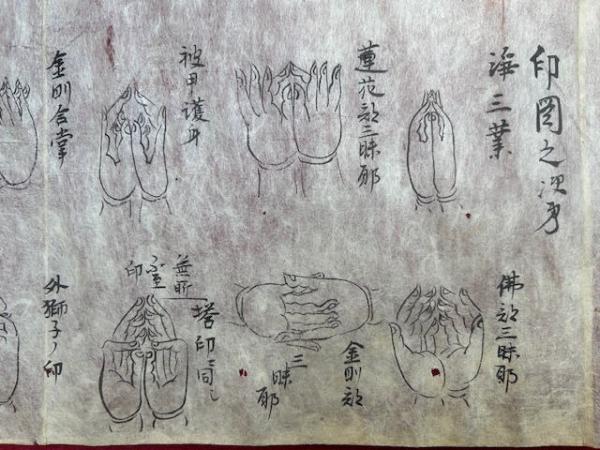 印図之次第
浄三業
佛部三昧耶
蓮花部三昧耶
金剛部
三昧耶
被甲護身
無所
不至
印
塔印ニ同シ
金剛合掌
外獅子ノ印